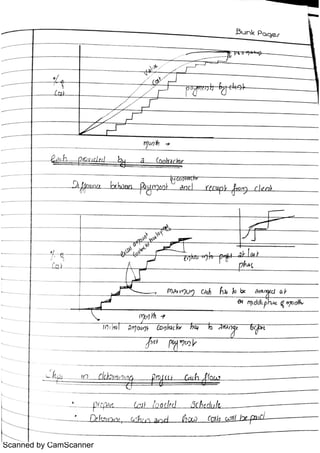 Bunk Pages
Value
Cost
% of
Cost
payments by client
month →
Cash provided by a Contractor
Difference between Payment by contractor and recept from client
% of
Cost
Enters into profit at last
phase
maximum Cash has to be arranged at
or middle phase of month
month →
initial amount Contractor has to arrange before
first payment
Steps in determining project Cash flow
• prepare Cost loaded Schedule
• Determine, when and how Costs will be paid
Scanned by CamScanner